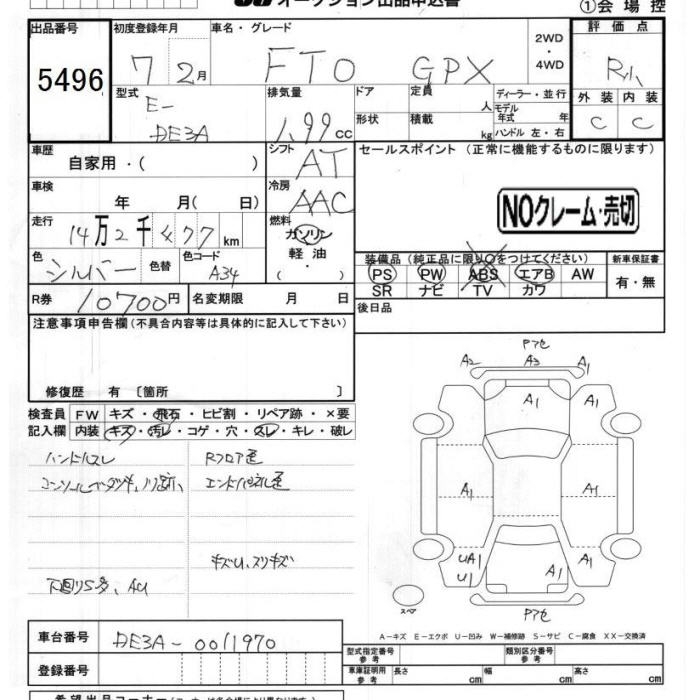 オークション出品申込書
①会場控
出品番号 初度登録年月 車名・グレード 評価点
5496 7 2月 FTO GPX 2WD・4WD R小
型式 排気量 ドア 定員 人 ディーラー・並行 外装 内装
E-DE3A 1.99cc 形状 積載 kg モデル年式 年 C C
ハンドル 左・右
車歴 シフト セールスポイント (正常に機能するものに限ります)
自家用・( ) AT
車検 冷房
年 月( 日) AAC
NOクレーム・売切
走行 燃料
14万2千 77km ガソリン
軽油
・
( )
色 色替 色コード 装備品(純正品に限り○をつけてください) 新車保証書
シルバー A34 PS PW ABS エアB AW 有・無
SR ナビ TV カワ
R券 10700円 名変期限 月 日 後日品
注意事項申告欄(不具合内容等は具体的に記入して下さい)
修復歴 有 〔箇所 〕
検査員 FW キズ・飛石・ヒビ割・リペア跡・×要
記入欄 内装 キズ・汚レ・コゲ・穴・スレ・キレ・破レ
ハンドルスレ Rフロア歪
エンドパネル歪
キズU、スリキズ
下回りS多、AU
Pアセ
A2 A3 A1
A1
A1 A1
UA1 A1 A1
U1
スペア
Pアセ
A-キズ E-エクボ U-凹み W-補修跡 S-サビ C-腐食 XX-交換済
車台番号 DE3A-0011970
登録番号
型式指定番号 参考 類別区分番号 参考
車庫証明用 参考 長さ cm 幅 cm 高さ cm
希望出品コーナー